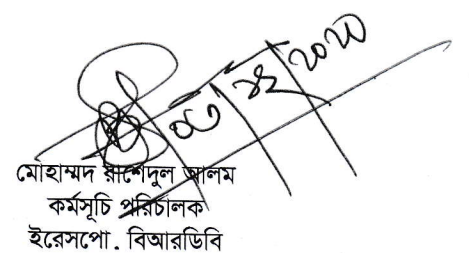 মোহাম্মদ রাশেদুল আলম
কর্মসূচি পরিচালক
ইরেসপো. বিআরডিবি